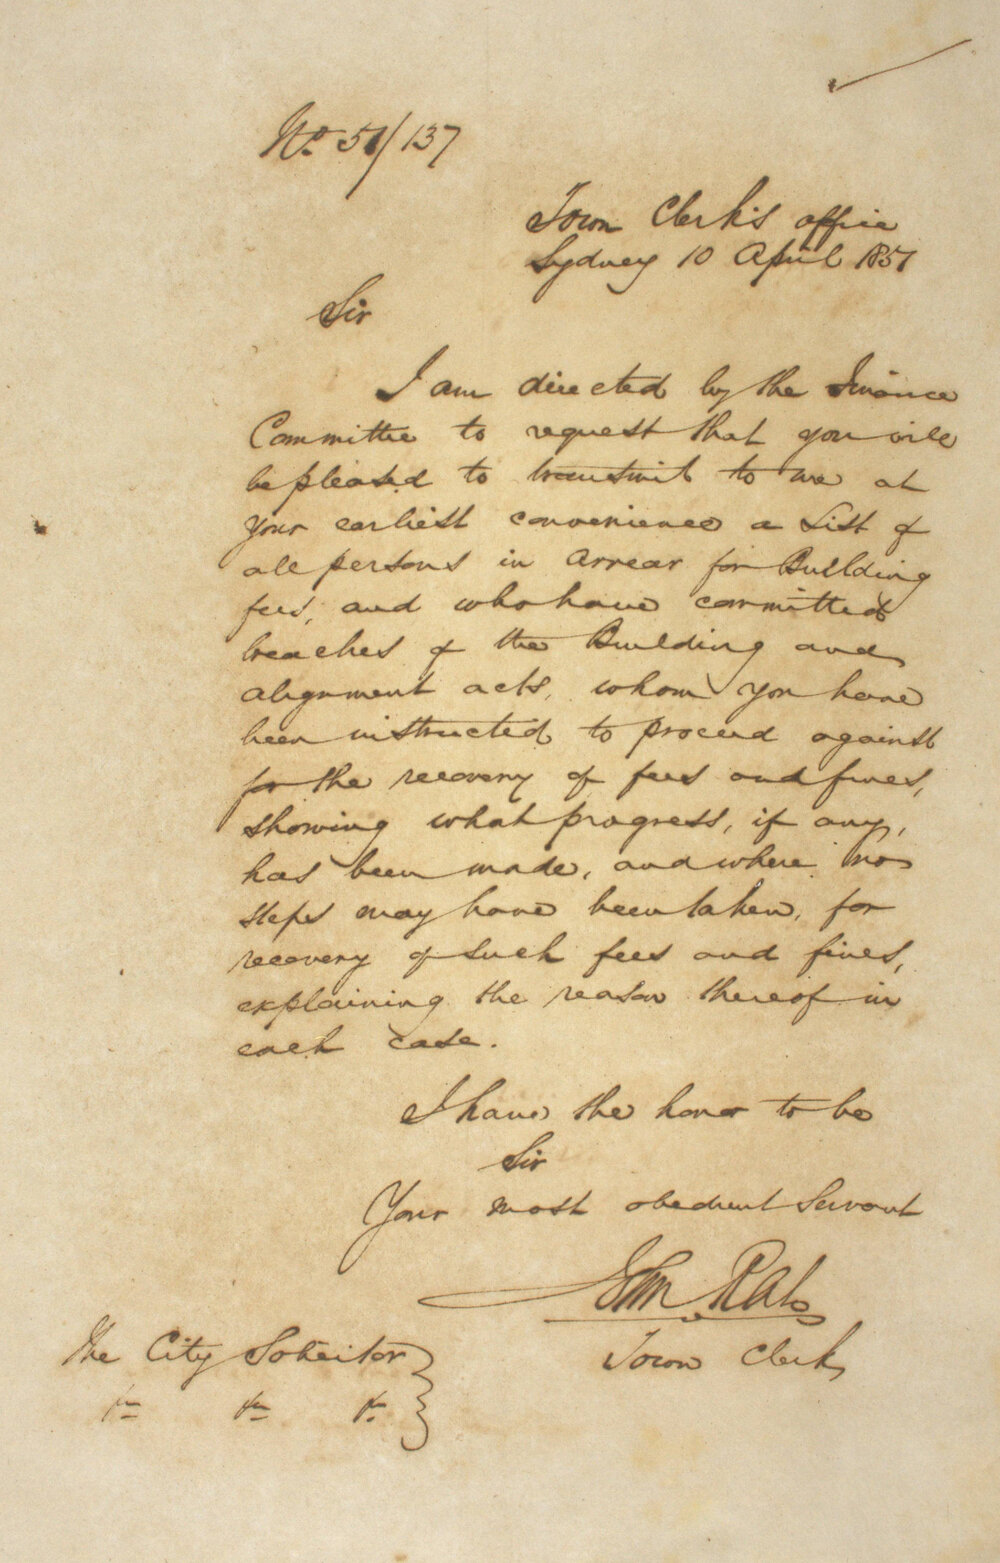 No. 51/137
Town Clerk's office
Sydney 10 April 1851
Sir
I am directed by the Finance
Committee to request that you will
be pleased to transmit to me at
your earliest convenience a List of
all persons in Arrear for Building
fees, and who have committed
breaches of the Building and
alignment acts, whom you have
been instructed to proceed against
for the recovery of fees and fines,
showing what progress, if any,
has been made, and where no
steps may have been taken, for
recovery of such fees and fines,
explaining the reason thereof in
each case.
I have the honor to be
Sir
Your most obedient Servant
John Rae
Town Clerk
The City Solicitor